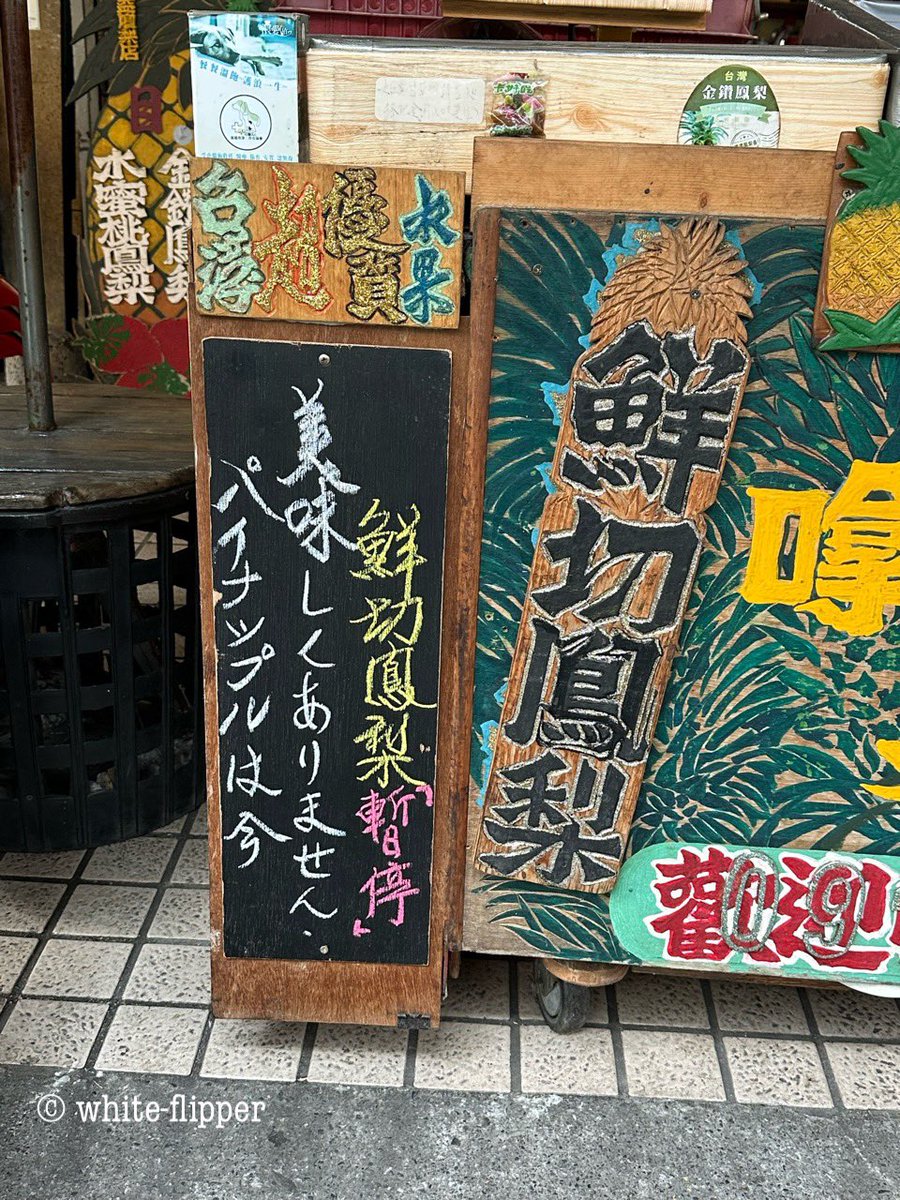 金鑽鳳梨
水蜜桃鳳梨
台灣
金鑽鳳梨
台湾超優質水果
鮮切鳳梨「暫停」
美味しくありません、
パイナップルは今
鮮切鳳梨
歡迎
© white-flipper